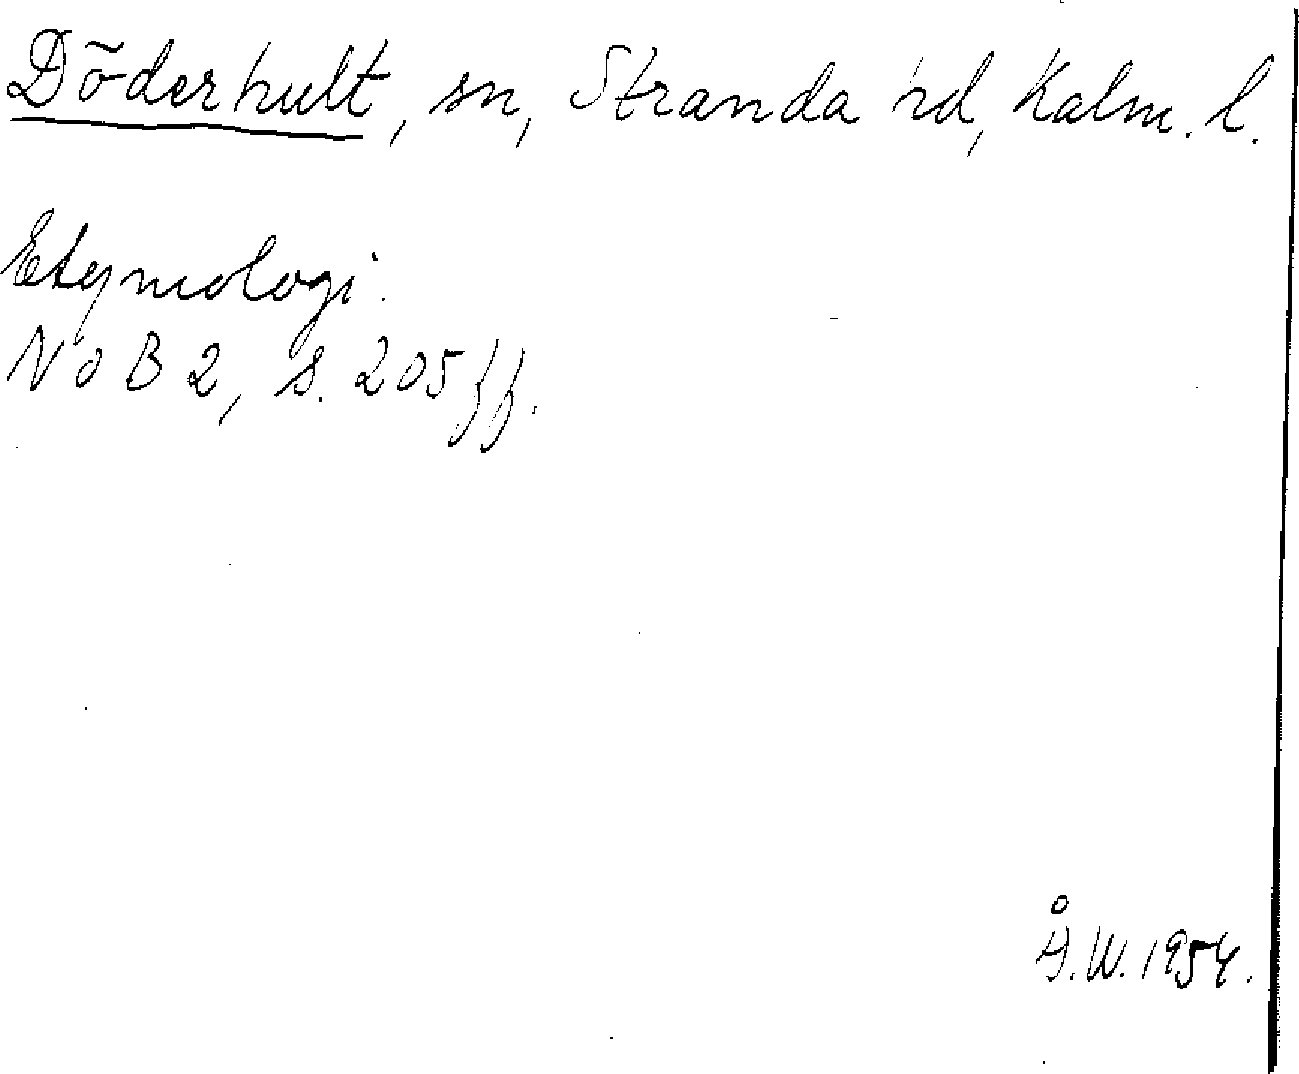 Döderhult, sn, Stranda hd, Kalm. l.
Etymologi.
NoB 2, s. 205 ff.
Å.W. 1954.